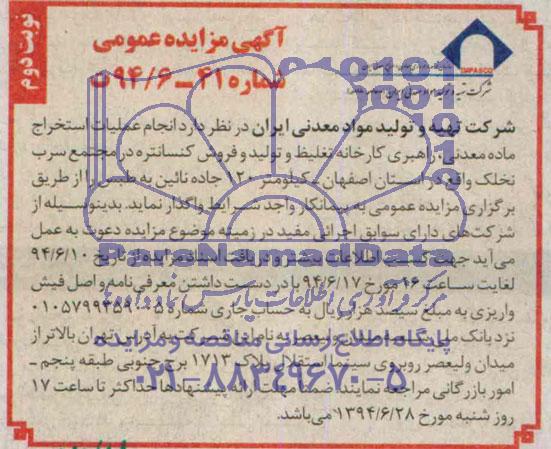 نوبت دوم
آگهی مزایده عمومی
شماره ۴۱ــ۹۴/۶ن
IMPASCO
شرکت تهیه و تولید مواد معدنی ایران
شرکت تهیه و تولید مواد معدنی ایران در نظر دارد انجام عملیات استخراج
ماده معدنی، راهبری کارخانه تغلیظ و تولید و فروش کنسانتره در مجتمع سرب
نخلک واقع در استان اصفهان ـ کیلومتر ۱۲۰ جاده نائین به طبس را از طریق
برگزاری مزایده عمومی به پیمانکار واجد شرایط واگذار نماید. بدینوسیله از
شرکت‌های دارای سوابق اجرائی مفید در زمینه موضوع مزایده دعوت به عمل
می‌آید جهت کسب اطلاعات بیشتر و دریافت اسناد مزایده از تاریخ ۹۴/۶/۱۰
لغایت ساعت ۱۶ مورخ ۹۴/۶/۱۷ با در دست داشتن معرفی‌نامه و اصل فیش
واریزی به مبلغ سیصد هزار ریال به حساب جاری شماره ۰۱۰۵۷۹۹۳۵۹۰۰۵
نزد بانک ملی به نام این شرکت به آدرس: تهران بالاتر از
میدان ولیعصر روبروی سینما استقلال پلاک ۱۷۱۳ برج جنوبی طبقه پنجم ـ
امور بازرگانی مراجعه نمایند. ضمنا مهلت ارائه پیشنهادها حداکثر تا ساعت ۱۷
روز شنبه مورخ ۱۳۹۴/۶/۲۸ می‌باشد.
ParsNamadData
مرکز فرآوری اطلاعات پارس نماد داده‌ها
پایگاه اطلاع رسانی مناقصه و مزایده
۰۲۱-۸۸۳۴۹۶۷۰-۵